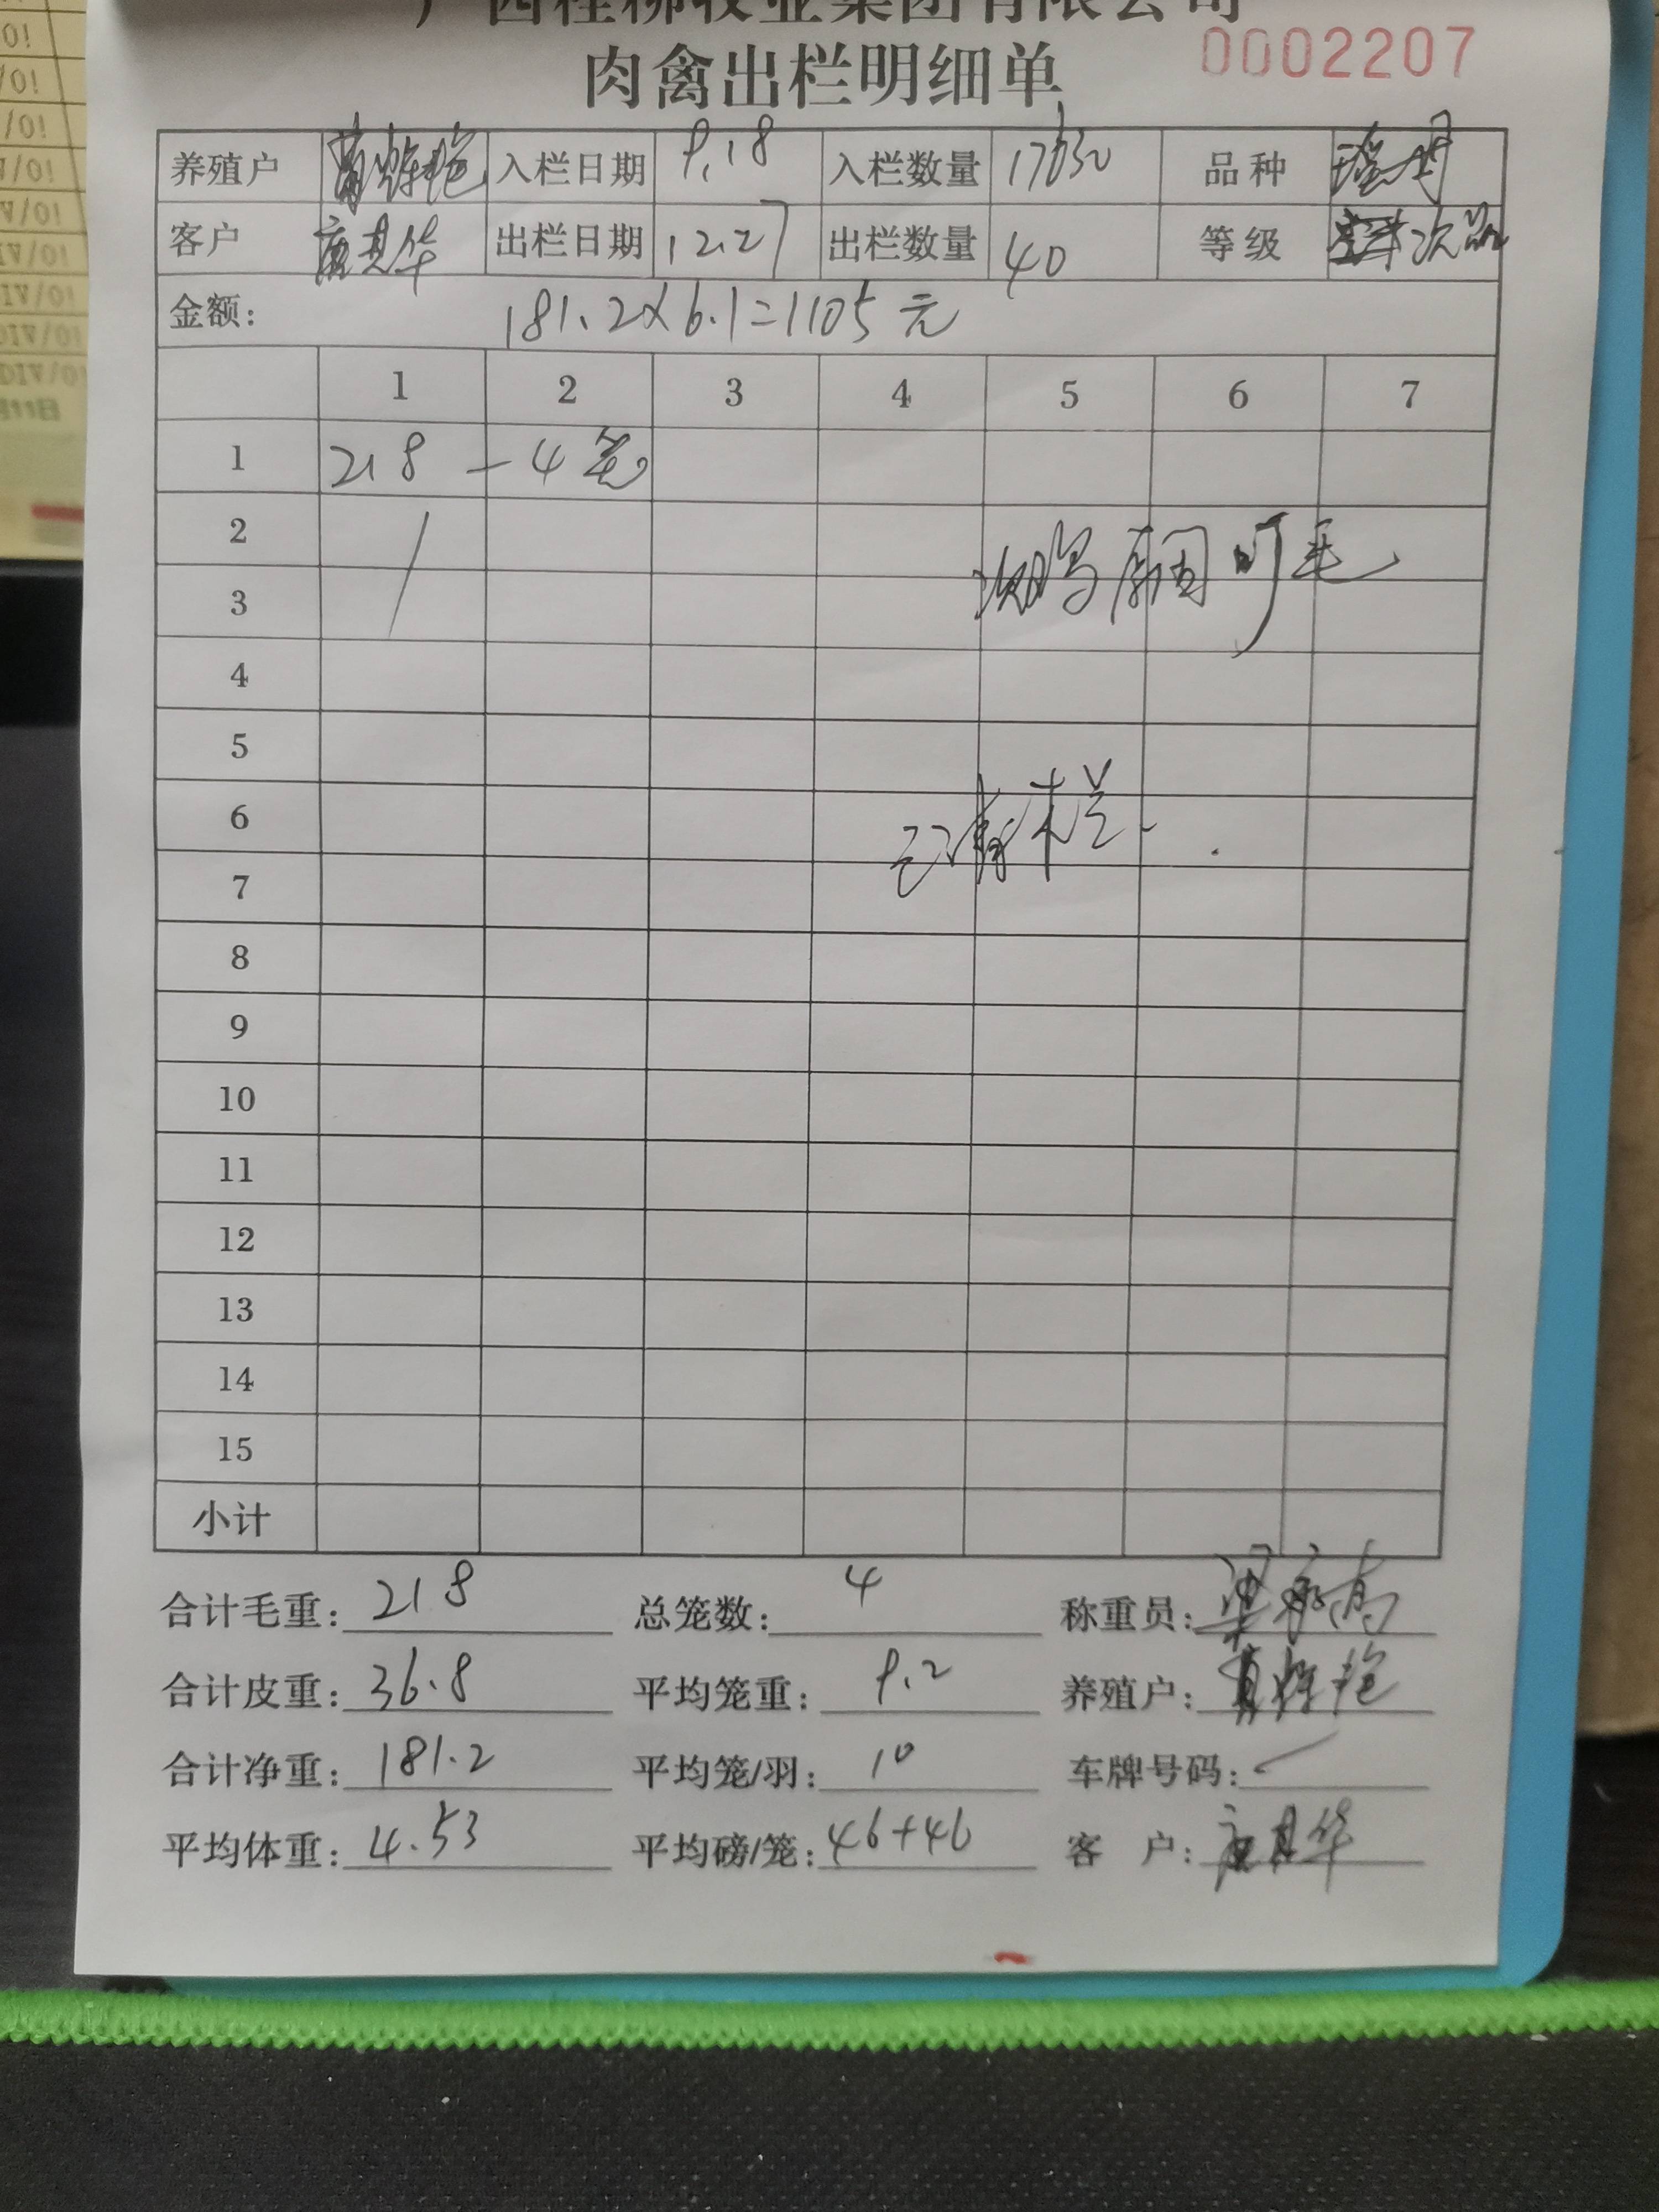 广西桂柳牧业集团有限公司
肉禽出栏明细单 0002207
养殖户 入栏日期 9.18 入栏数量 17630 品种
客户 出栏日期 12.27 出栏数量 40 等级 次品
金额: 181.2×6.1=1105元
1 2 3 4 5 6 7
1 218 - 4笼
2
3
4
5
6 已清栏.
7
8
9
10
11
12
13
14
15
小计
合计毛重: 218 总笼数: 4 称重员:
合计皮重: 36.8 平均笼重: 9.2 养殖户:
合计净重: 181.2 平均笼/羽: 10 车牌号码:
平均体重: 4.53 平均磅/笼: 46+46 客 户: